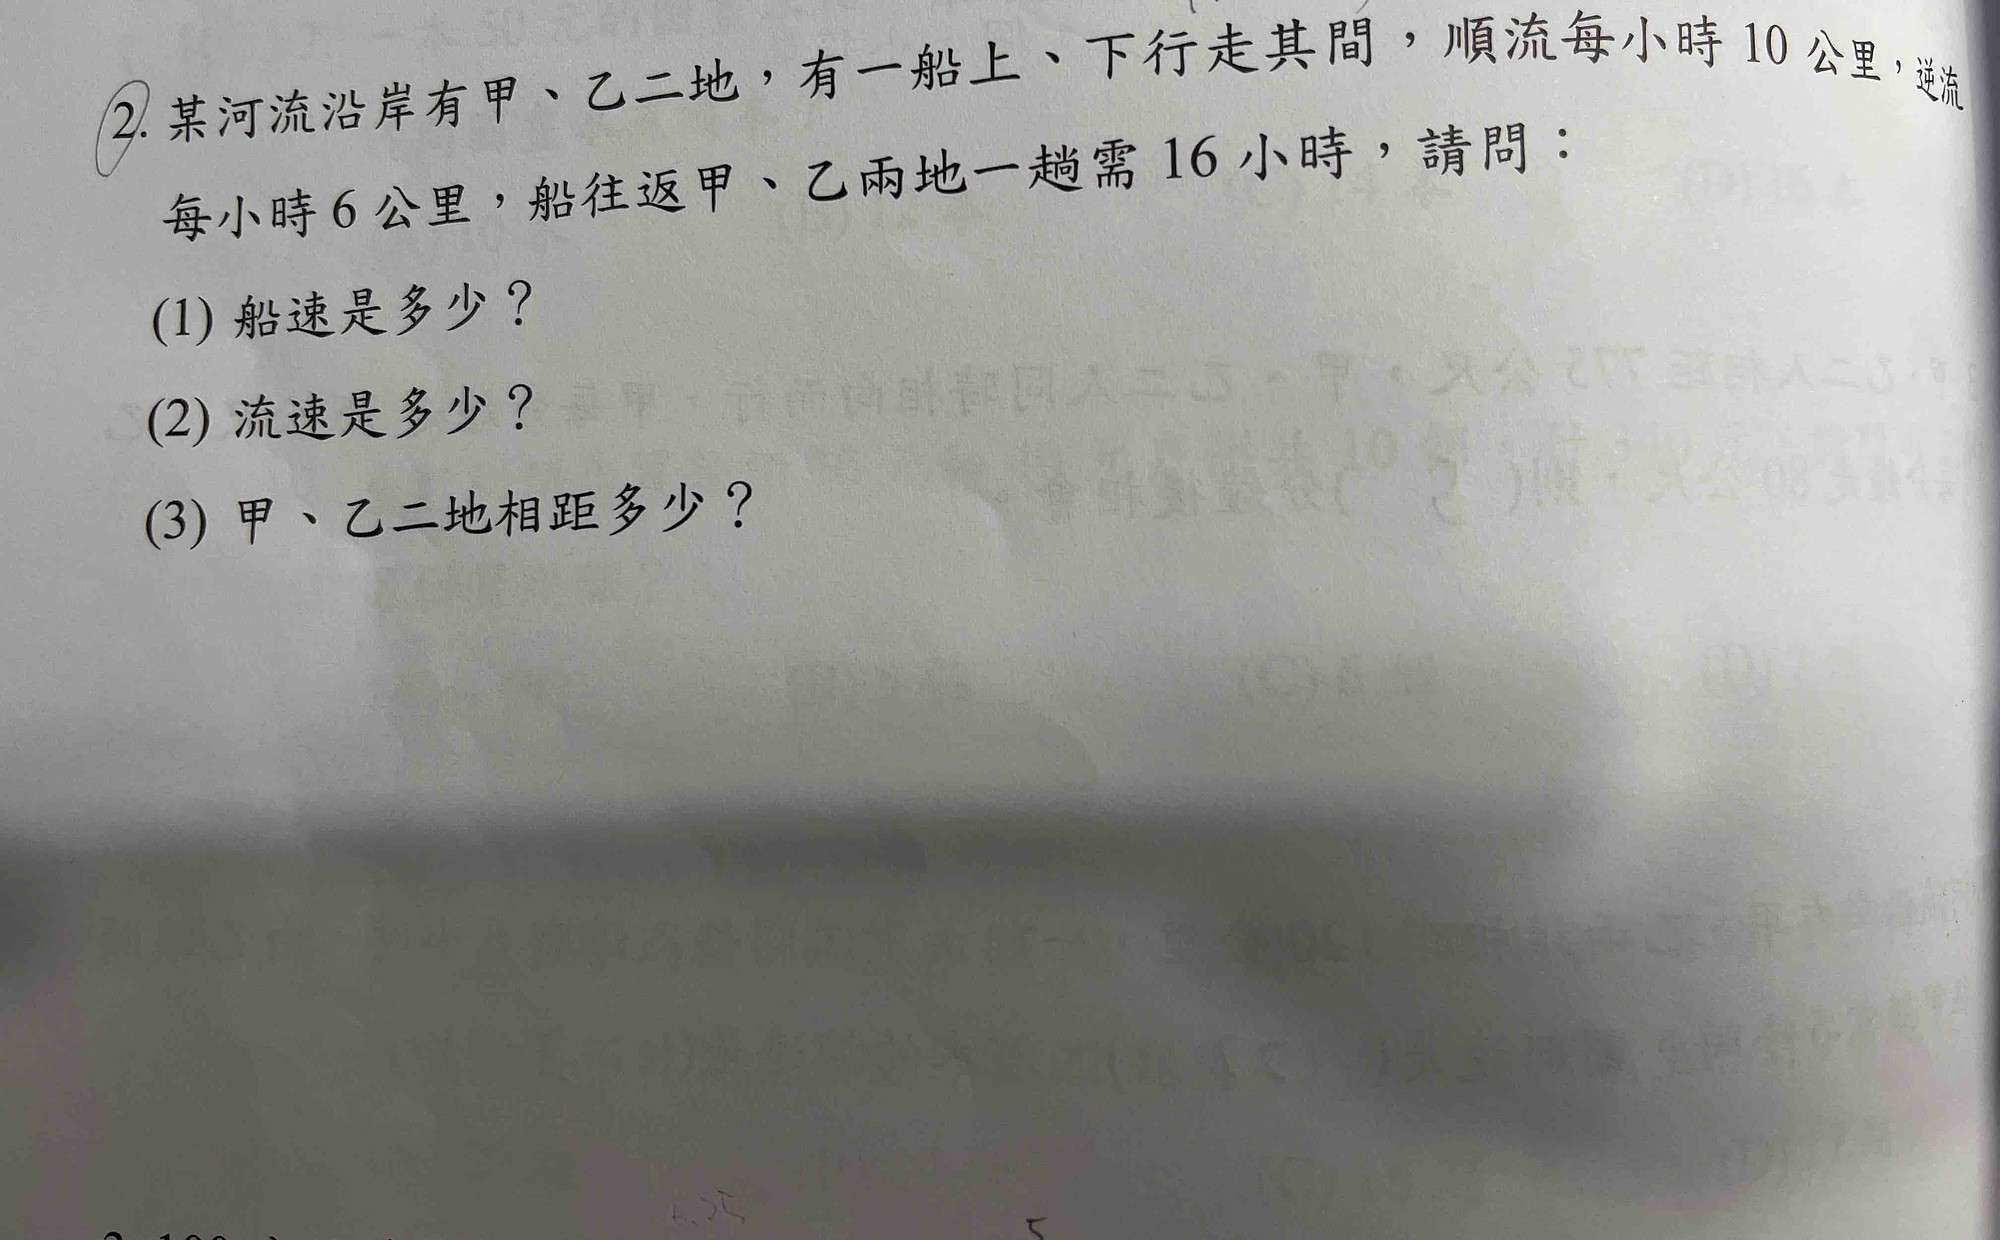 2. 某河流沿岸有甲、乙二地，有一船上、下行走其間，順流每小時 10 公里，逆流
每小時 6 公里，船往返甲、乙兩地一趟需 16 小時，請問：
(1) 船速是多少？
(2) 流速是多少？
(3) 甲、乙二地相距多少？
6.25
5